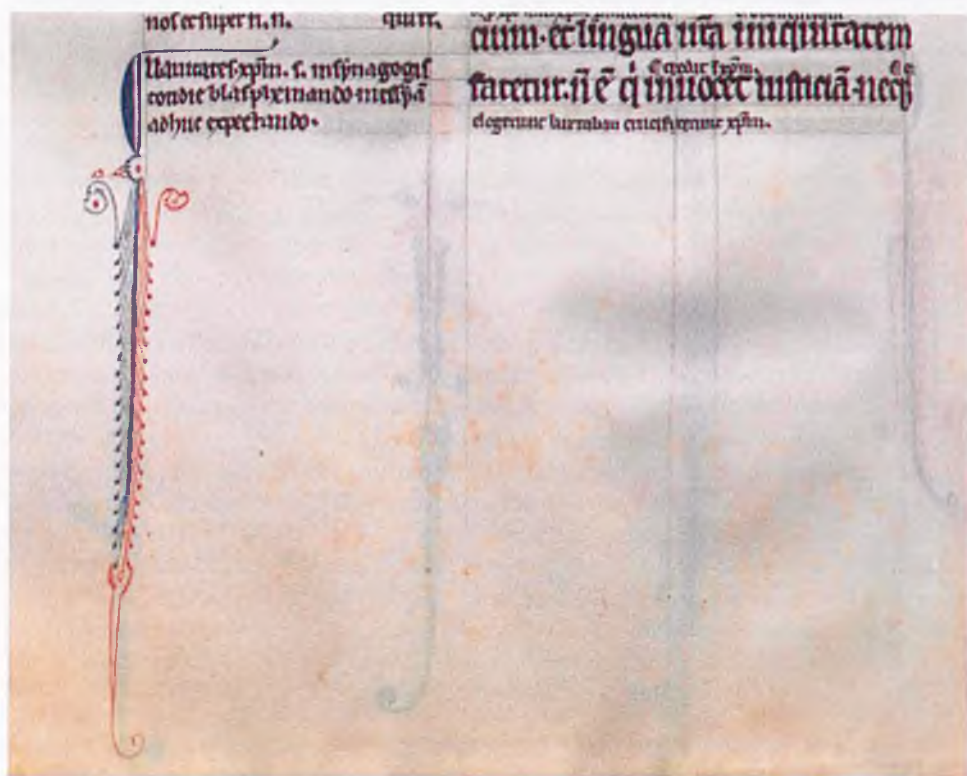 nos et super n. n.
xp̄m. s. in synagogis
cotidie blasphemando messyā
adhuc expectando.
cium. et lingua ur̄a iniquitatem
credit ī xp̄m.
fatetur. n̄ ē q inuocet iusticiā. neq;
elegerunt barraban crucifixerunt xp̄m.